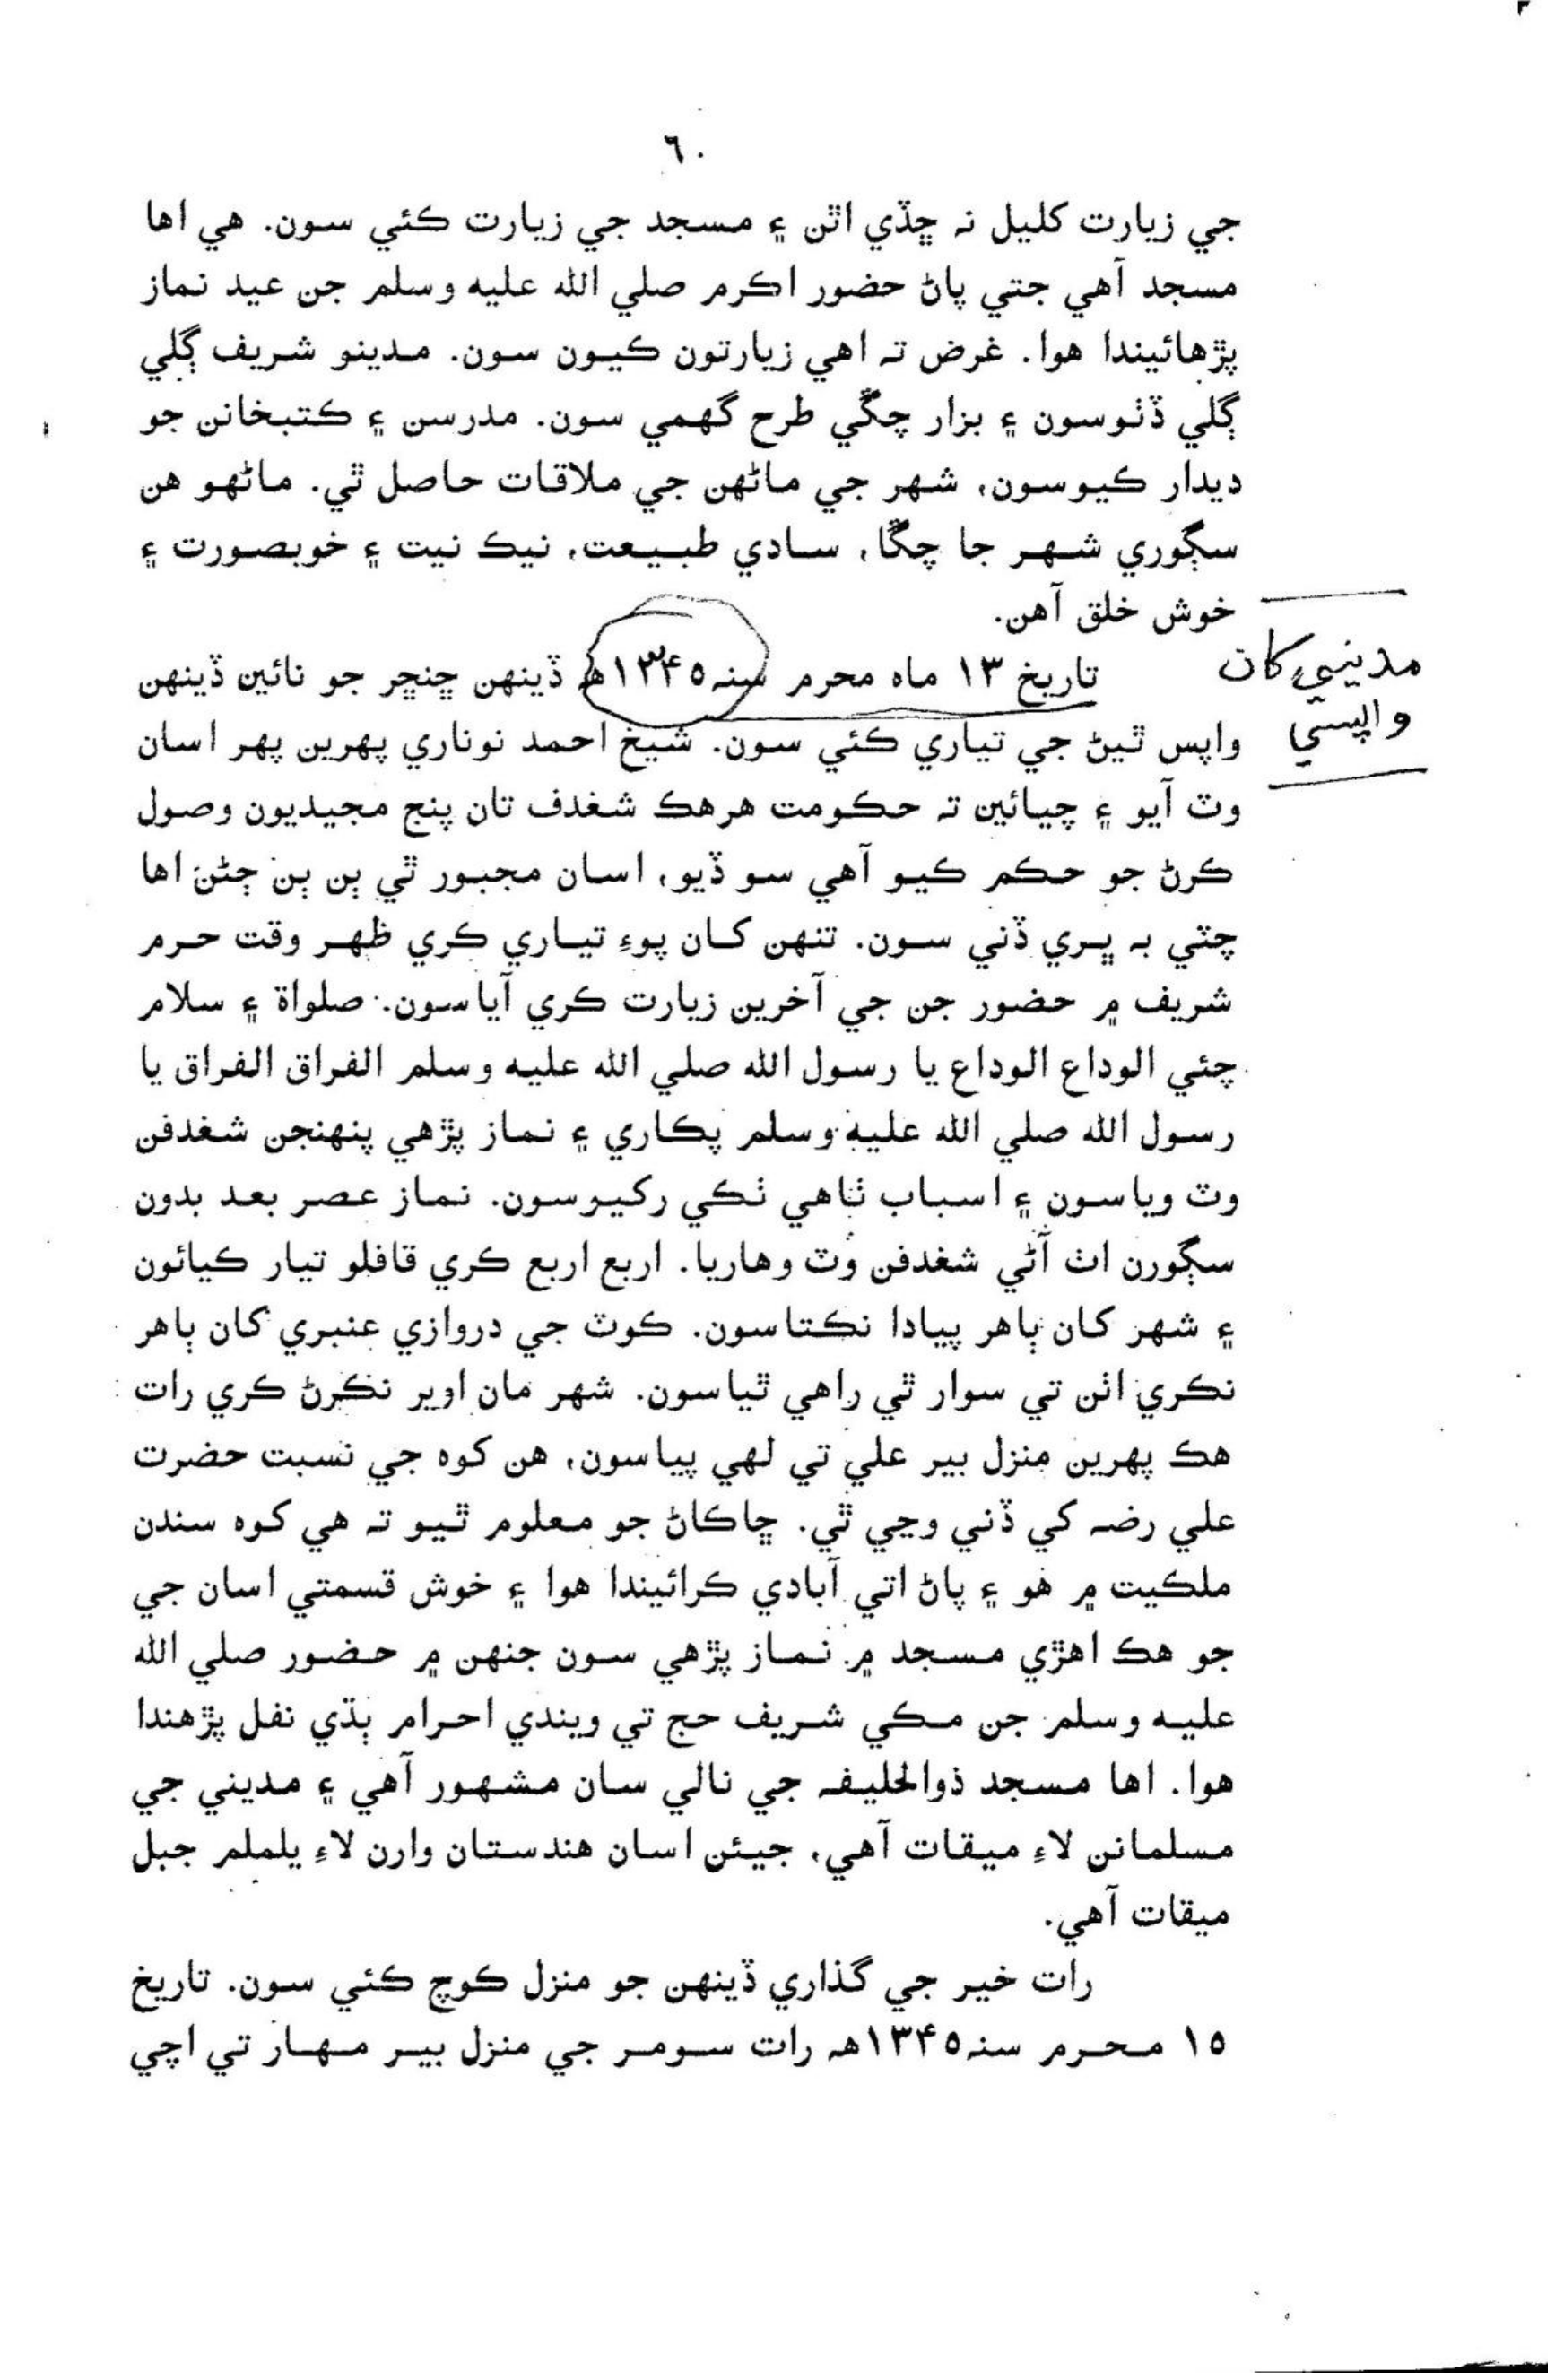 ٦٠
جي زيارت کليل نہ ڇڏي اٿن ۽ مسجد جي زيارت ڪئي سون. هي اها
مسجد آهي جتي پاڻ حضور اڪرم صلي الله عليه وسلم جن عيد نماز
پڙهائيندا هوا. غرض تہ اهي زيارتون ڪيون سون. مدينو شريف ڳلي
ڳلي ڏٺوسون ۽ بزار چڱي طرح گهمي سون. مدرسن ۽ ڪتبخانن جو
ديدار ڪيوسون، شهر جي ماڻهن جي ملاقات حاصل ٿي. ماڻهو هن
سڳوري شهر جا چڱا، سادي طبيعت، نيڪ نيت ۽ خوبصورت ۽
خوش خلق آهن.
مديني کان
واپسي
تاريخ ١٣ ماه محرم سنہ ١٣۴٥ھ ڏينهن ڇنڇر جو نائين ڏينهن
واپس ٿيڻ جي تياري ڪئي سون. شيخ احمد نوناري پهرين پهر اسان
وٽ آيو ۽ چيائين تہ حڪومت هرهڪ شغدف تان پنج مجيديون وصول
ڪرڻ جو حڪم ڪيو آهي سو ڏيو، اسان مجبور ٿي ٻن ٻن ڄڻن اها
چٽي بہ ڀري ڏني سون. تنهن کان پوءِ تياري ڪري ظهر وقت حرم
شريف ۾ حضور جن جي آخرين زيارت ڪري آياسون. صلواة ۽ سلام
چئي الوداع الوداع يا رسول الله صلي الله عليه وسلم الفراق الفراق يا
رسول الله صلي الله عليه وسلم پڪاري ۽ نماز پڙهي پنهنجن شغدفن
وٽ وياسون ۽ اسباب ٺاهي ٺڪي رکيرسون. نماز عصر بعد بدون
سڳورن اٺ آڻي شغدفن وٽ وهاريا. اربع اربع ڪري قافلو تيار ڪيائون
۽ شهر کان ٻاهر پيادا نڪتاسون. ڪوٽ جي دروازي عنبري کان ٻاهر
نڪري اٺن تي سوار ٿي راهي ٿياسون. شهر مان اوير نڪرڻ ڪري رات
هڪ پهرين منزل بير علي تي لهي پياسون، هن کوه جي نسبت حضرت
علي رضہ کي ڏني وڃي ٿي. ڇاڪاڻ جو معلوم ٿيو تہ هي کوه سندن
ملڪيت ۾ هو ۽ پاڻ اتي آبادي ڪرائيندا هوا ۽ خوش قسمتي اسان جي
جو هڪ اهڙي مسجد ۾ نماز پڙهي سون جنهن ۾ حضور صلي الله
عليه وسلم جن مڪي شريف حج تي ويندي احرام ٻڌي نفل پڙهندا
هوا. اها مسجد ذوالحليفہ جي نالي سان مشهور آهي ۽ مديني جي
مسلمانن لاءِ ميقات آهي، جيئن اسان هندستان وارن لاءِ يلملم جبل
ميقات آهي.
رات خير جي گذاري ڏينهن جو منزل ڪوچ ڪئي سون. تاريخ
١٥ محرم سنہ ١٣۴٥ھ رات سومر جي منزل بير مهار تي اچي